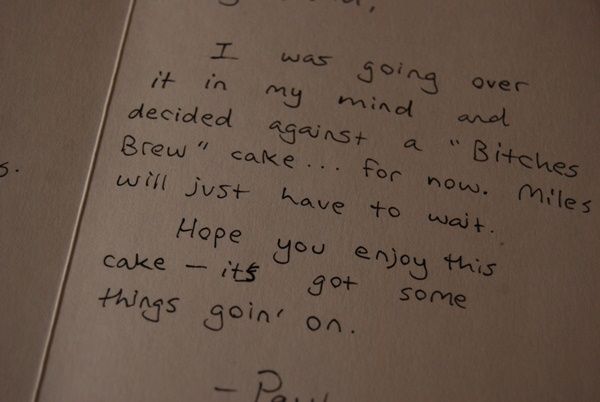 I was going over
it in my mind and
decided against a "Bitches
Brew" cake... for now. Miles
will just have to wait.
Hope you enjoy this
cake – its got some
things goin' on.